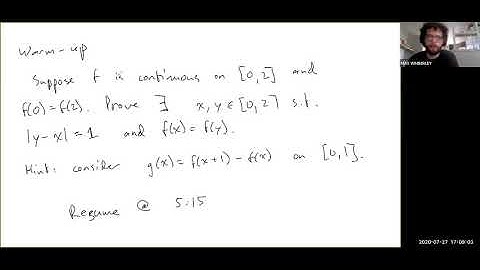 Warm-up
Suppose f is continuous on [0,2] and
f(0)=f(2). Prove ∃ x,y ∈ [0,2] s.t.
|y-x|=1 and f(x)=f(y).
Hint: consider g(x)=f(x+1)-f(x) on [0,1].
Resume @ 5:15
2020-07-27 17:09:03